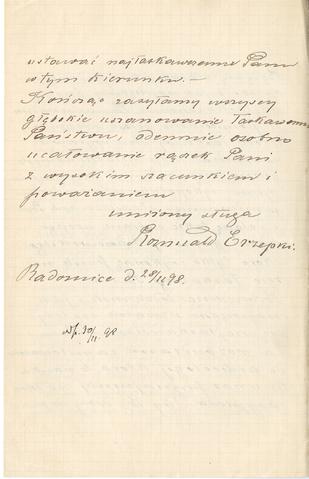 ustawać najłaskawszemu Panu
w tym kierunku. –
Kończąc zasyłamy wszyscy
głębokie uszanowanie Łaskawemu
Państwu, odemnie osobno
ucałowanie rączek Pani
z wysokim szacunkiem i
poważaniem
uniżony sługa
Romuald Erzepki.
Radomice d. 28/11 98.
30/11. 98